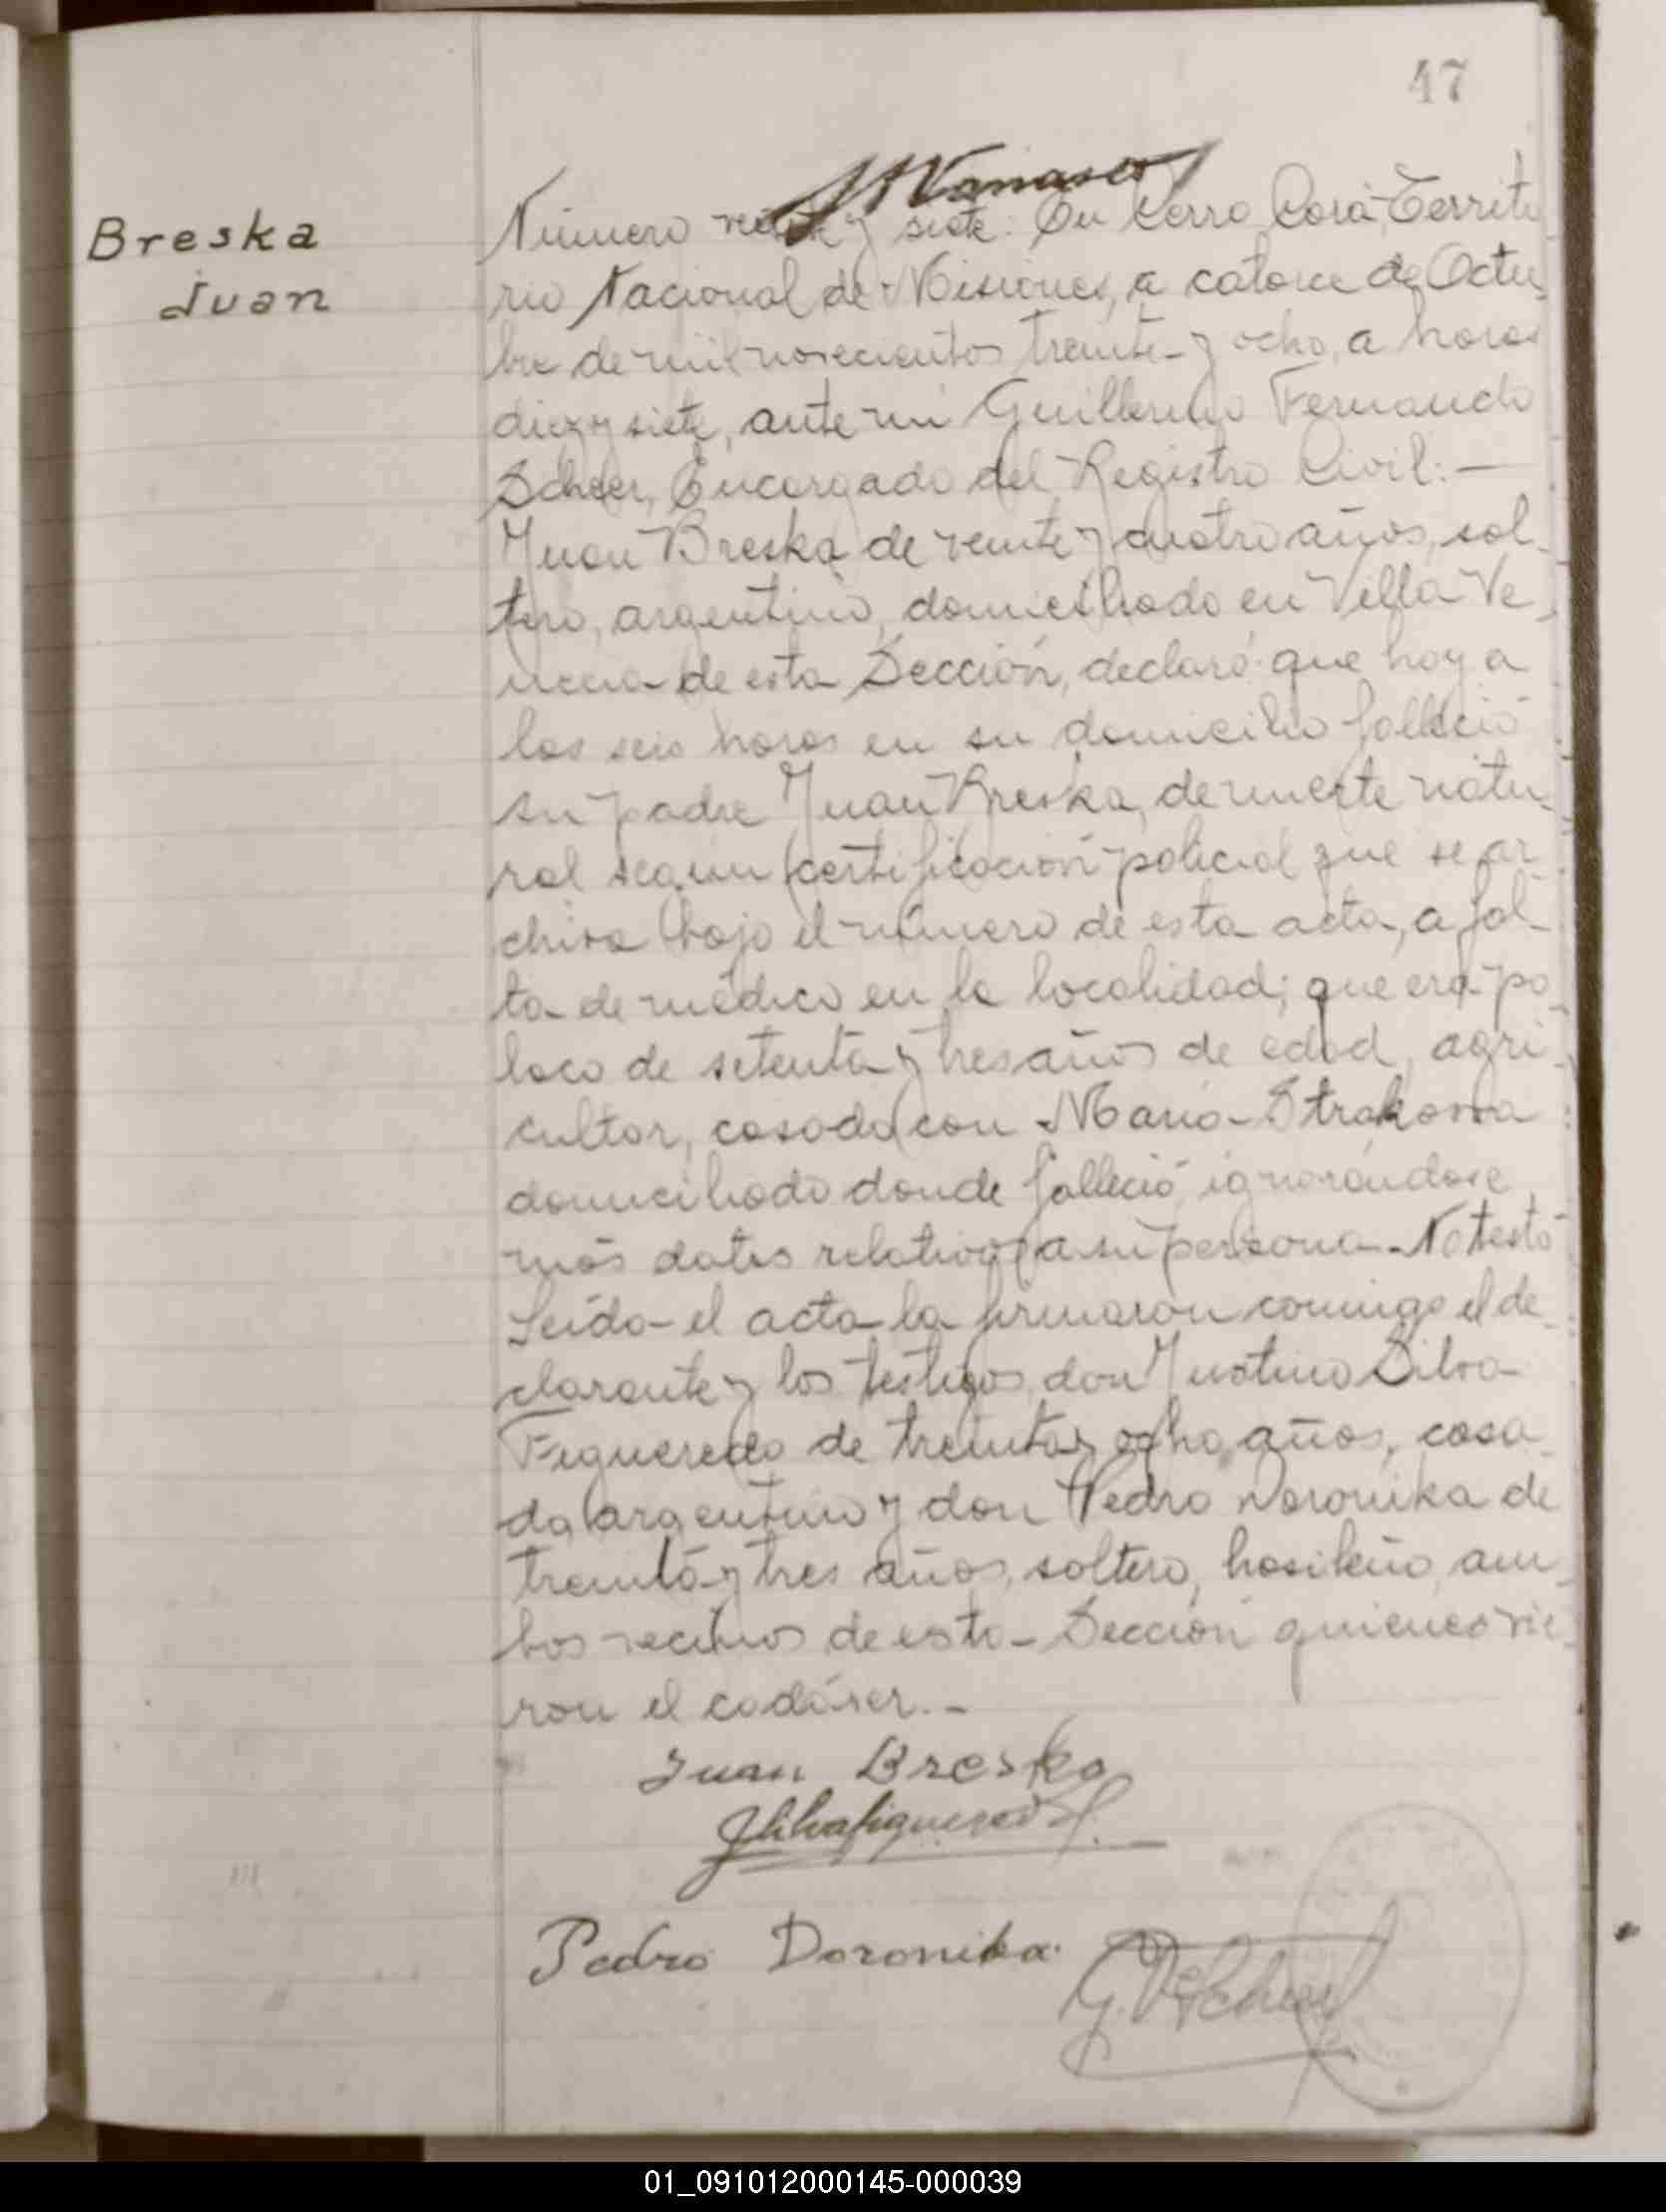 47
Breska
Juan
Número veinte y siete: En Cerro Corá, Territo
rio Nacional de Misiones, a catorce de Octu-
bre de mil novecientos treinta y ocho, a horas
diez y siete, ante mi Guillermo Fernando
Scheer, Encargado del Registro Civil:—
Juan Breska de veinte y cuatro años, sol-
tero, argentino, domiciliado en Villa Ve-
necia de esta Sección, declaró que hoy a
las seis horas en su domicilio falleció
su padre Juan Breska, de muerte natu-
ral según certificación policial que se ar-
chiva bajo el número de esta acta, a fal-
ta de médico en la localidad; que era po-
laco de setenta y tres años de edad, agri-
cultor, casado con Maria Strakowa
domiciliado donde falleció ignorándose
más datos relativos a su persona. No testó
Leída el acta la firmaron conmigo el de-
clarante y los testigos don Justino Silva
Figueredo de treinta y ocho años, casa-
do, argentino y don Pedro Doronika de
treinta y tres años, soltero, brasileño, am-
bos vecinos de esta Sección quienes vie-
ron el cadáver.-
Juan Breska
JSilvafigueredo
Pedro Doronika
01_091012000145-000039